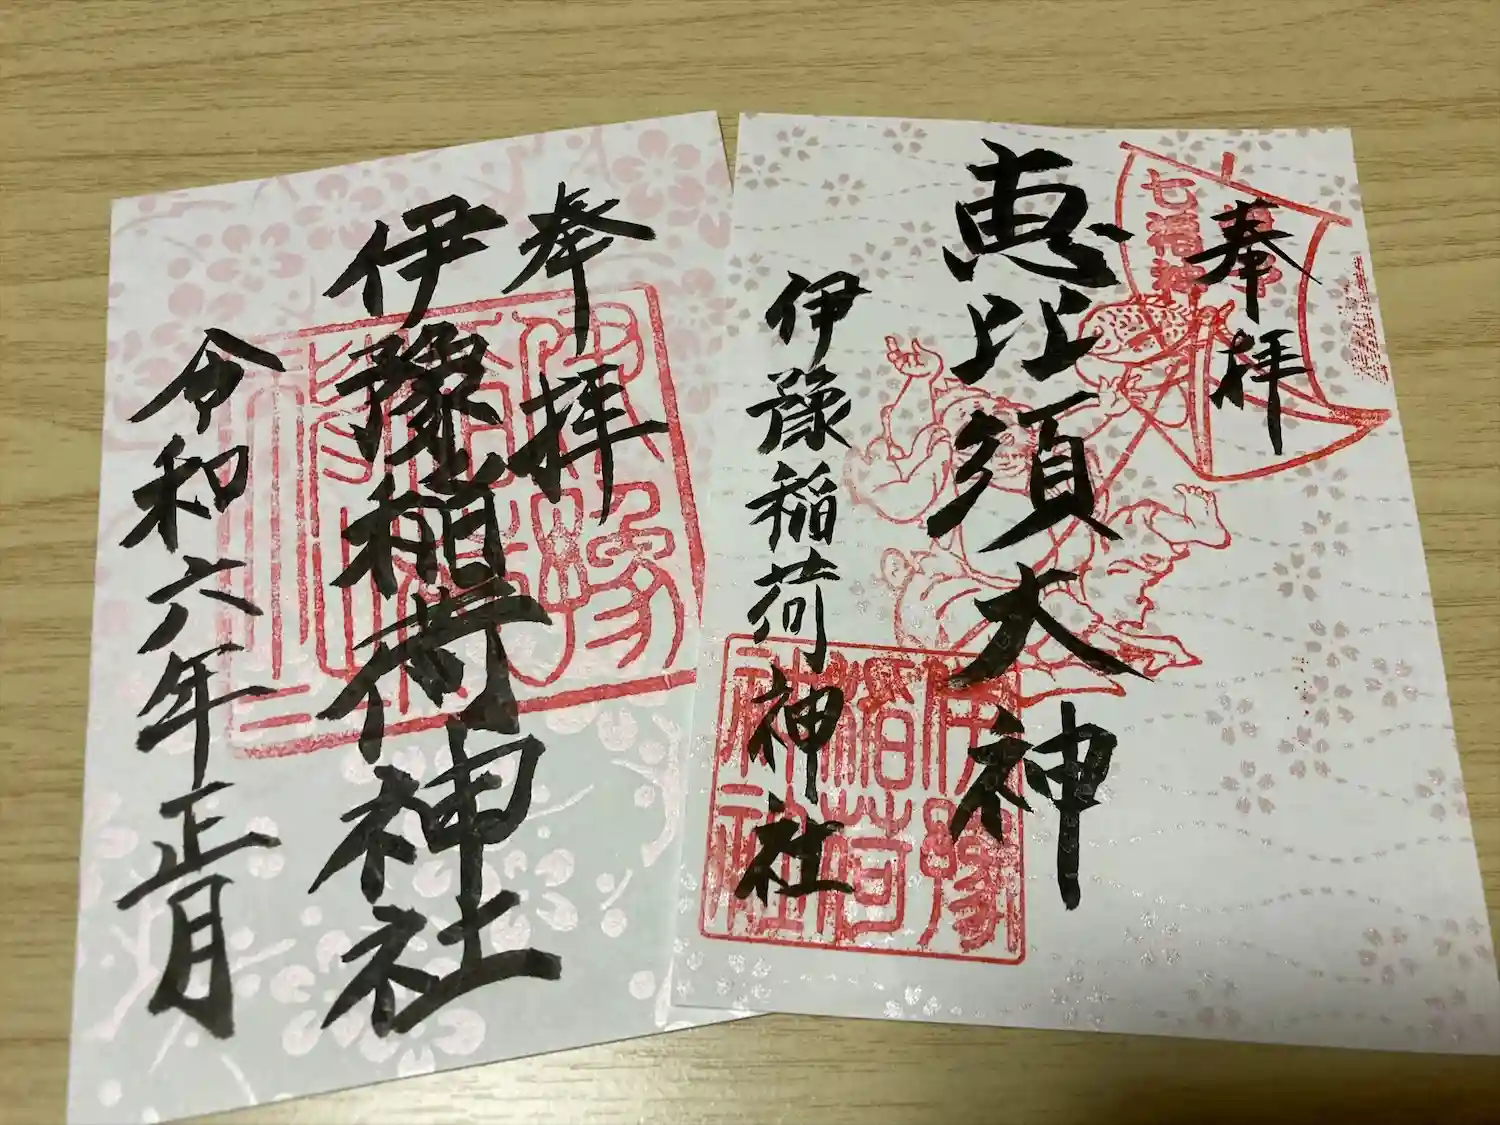 奉拝
伊豫稲荷神社
令和六年正月
奉拝
七福神
恵比須大神
伊豫稲荷神社
伊豫
稲荷
神社